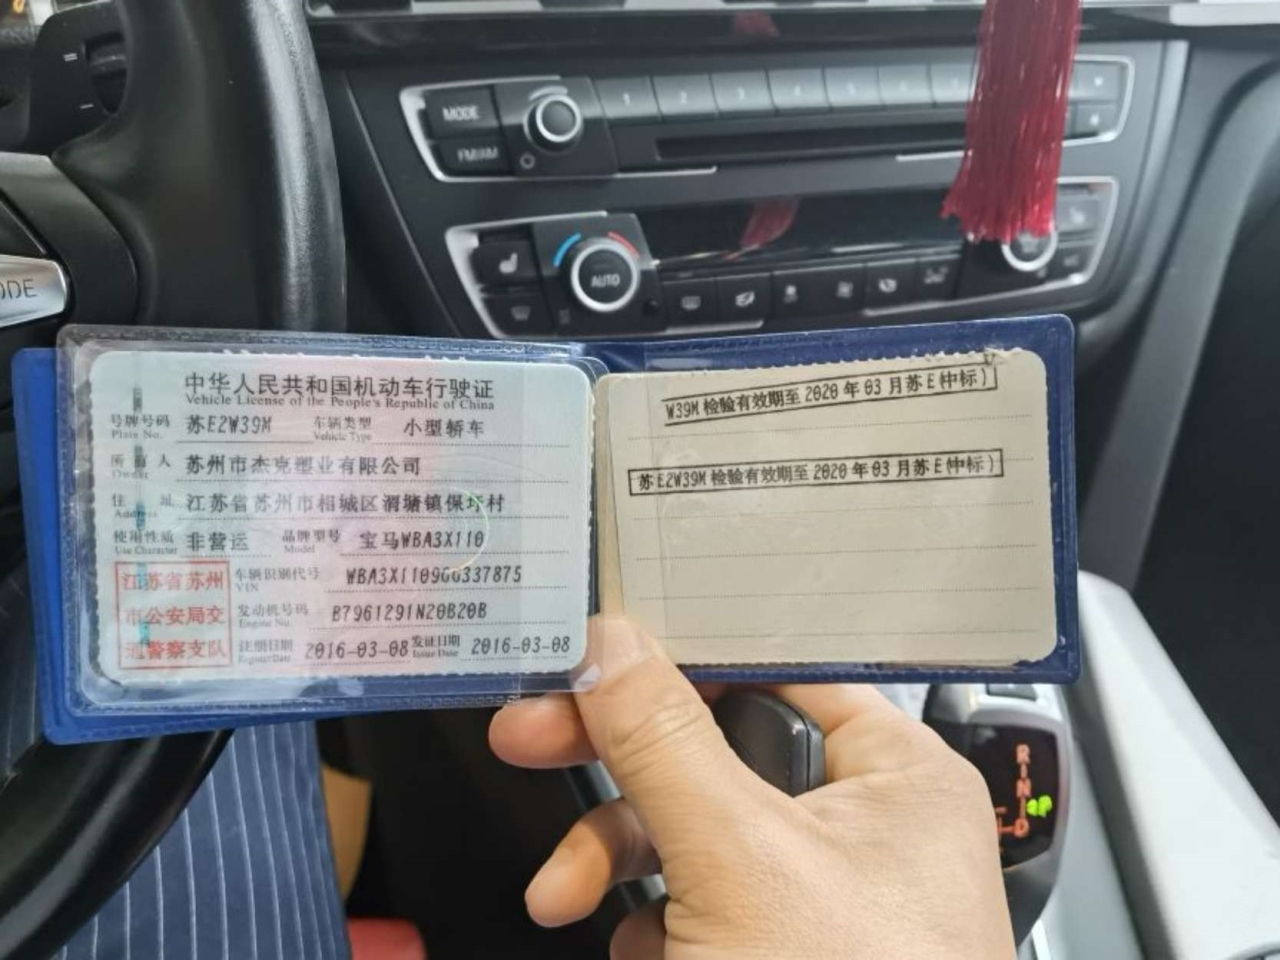 MODE
FM/AM
1 2 3 4
AUTO
ODE
中华人民共和国机动车行驶证
Vehicle License of the People's Republic of China
号牌号码 苏E2W39M 车辆类型 小型轿车
Plate No. Vehicle Type
所有人 苏州市杰克塑业有限公司
Owner
住址 江苏省苏州市相城区渭塘镇保圩村
Address
使用性质 非营运 品牌型号 宝马WBA3X110
Use Character Model
江苏省苏州
市公安局交
通警察支队
车辆识别代号
VIN
发动机号码 B7961291N20B20B
Engine No.
注册日期 2016-03-08 发证日期 2016-03-08
Register Date Issue Date
W39M 检验有效期至 2020 年 03 月苏 E(中标)
苏E2W39M 检验有效期至 2020 年 03 月苏 E(中标)
R
N
D
P